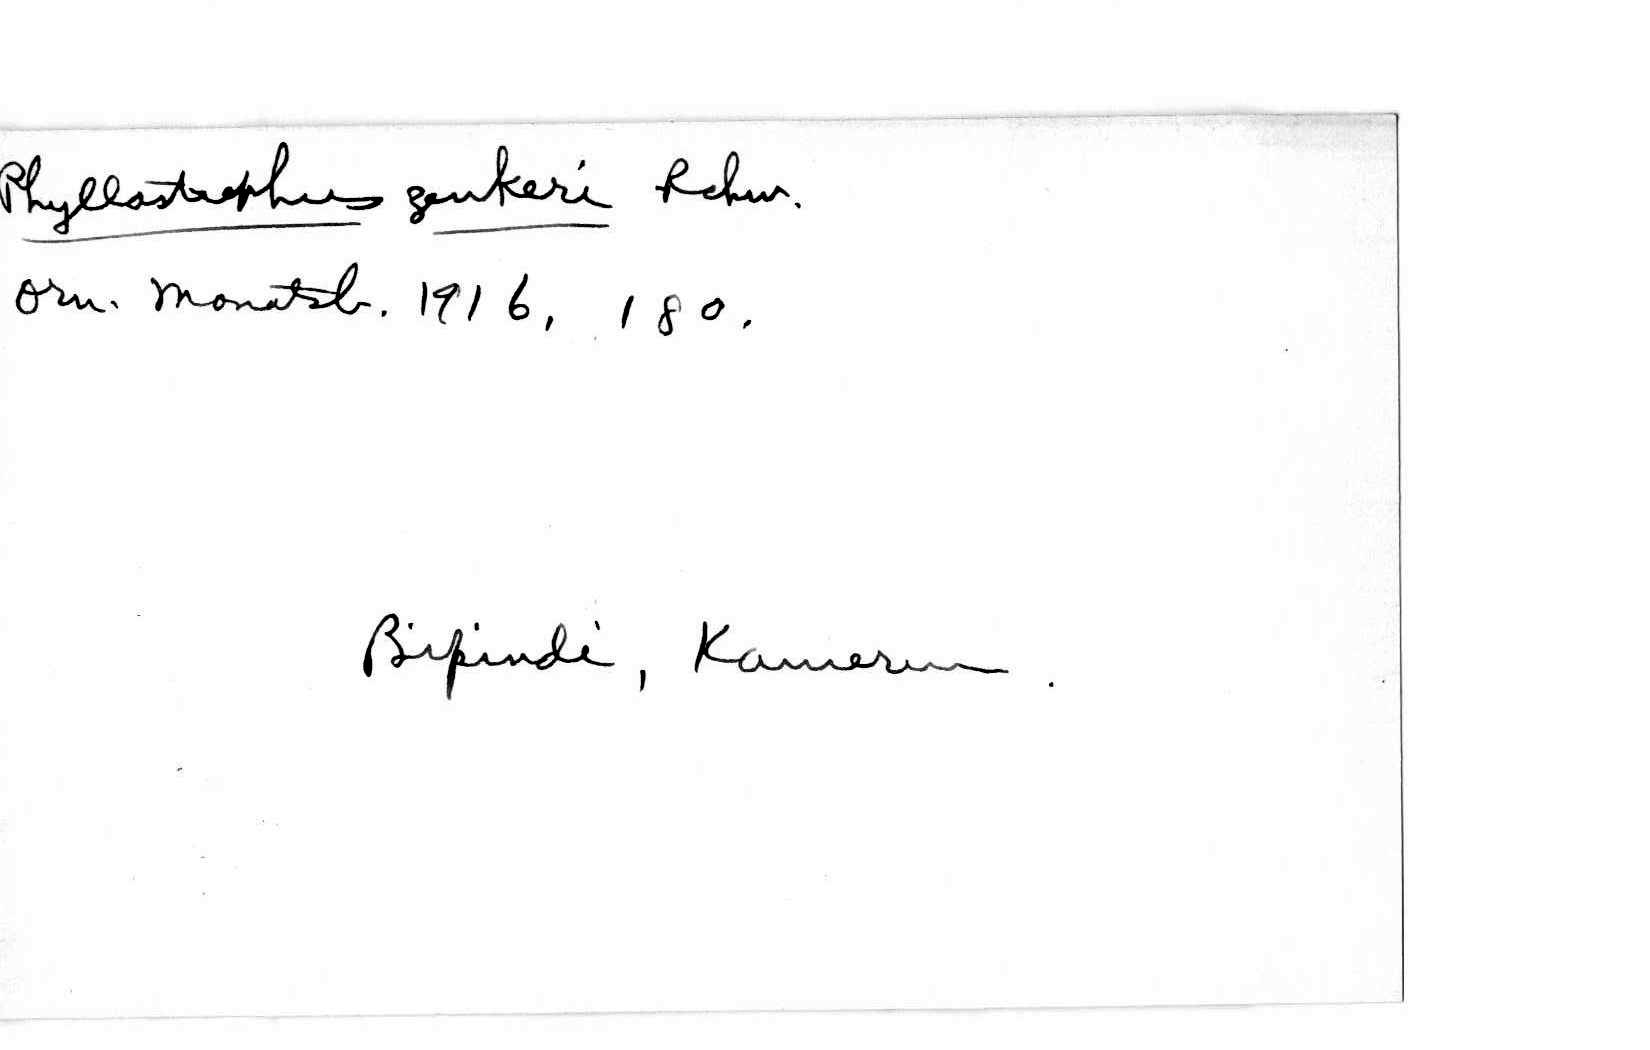 Phyllostrephus zenkeri Rchw.
Orn. Monatsb. 1916, 180.
Bipindi, Kamerun.